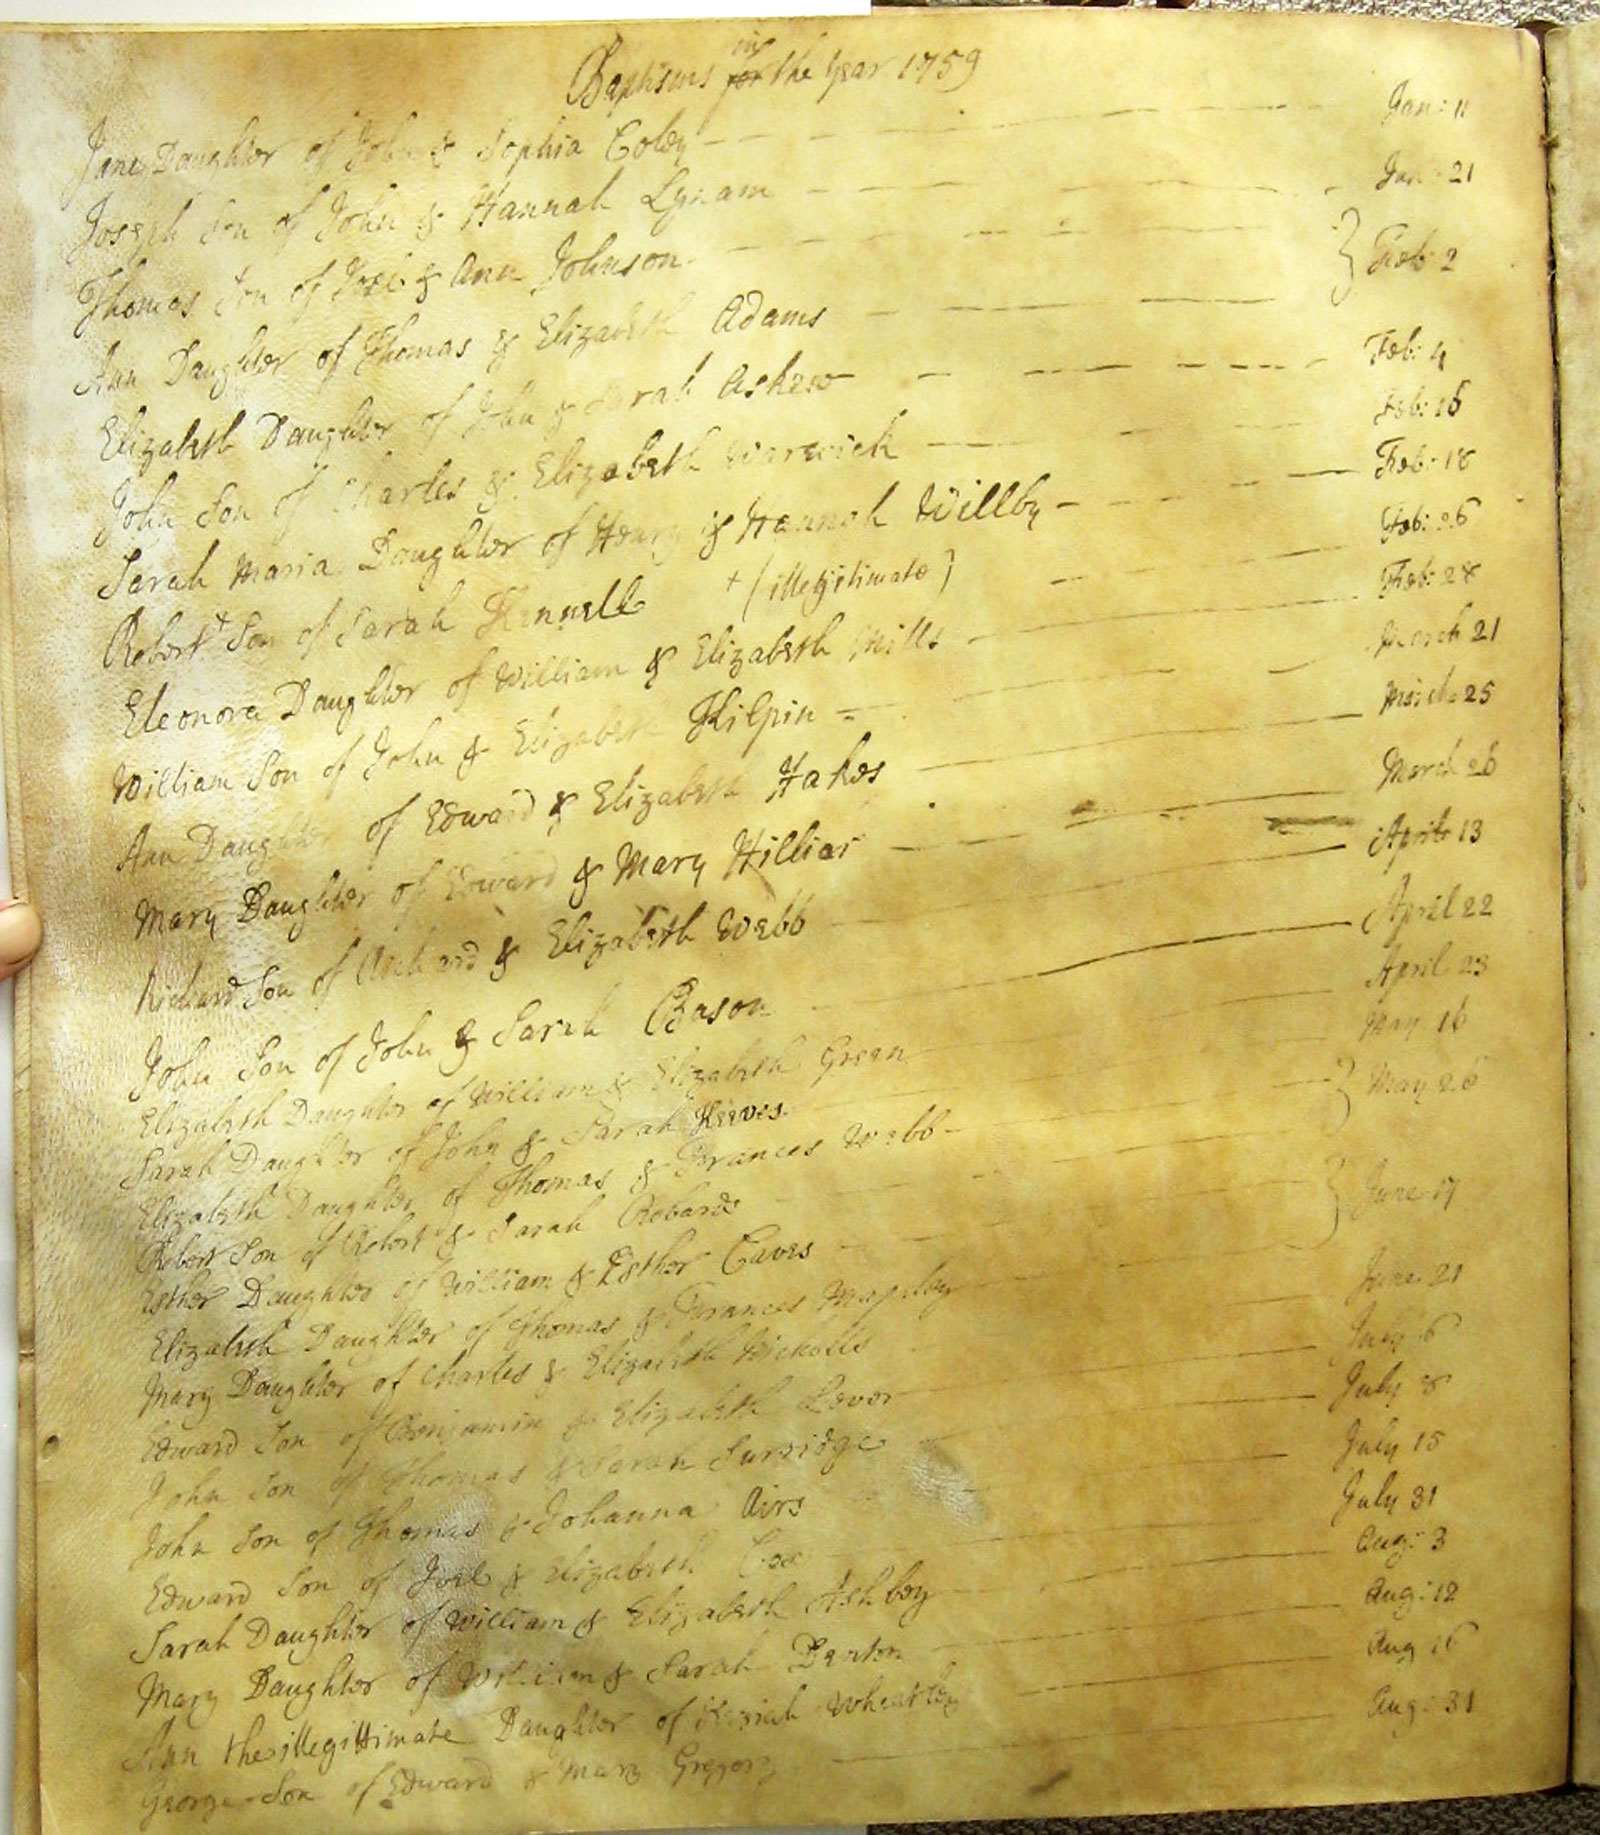 Baptisms in for the Year 1759
Jane Daughter of John & Sophia Coley Jan: 11
Joseph Son of John & Hannah Lynam Jan: 21
Thomas Son of Joel & Ann Johnson
Feb: 2
Ann Daughter of Thomas & Elizabeth Adams
Elizabeth Daughter of John & Sarah Askew Feb: 4
John Son of Charles & Elizabeth Warwick Feb: 16
Sarah Maria Daughter of Henry & Hannah Willby Feb: 18
Robert + Son of Sarah Kennell + (illegitimate) Feb: 26
Eleonora Daughter of William & Elizabeth Mills Feb: 28
William Son of John & Elizabeth Kilpin March 21
Ann Daughter of Edward & Elizabeth Hakes March 25
Mary Daughter of Edward & Mary Hilliar March 26
Richard Son of Richard & Elizabeth Webb April 13
John Son of John & Sarah Bason April 22
Elizabeth Daughter of William & Elizabeth Green April 23
Sarah Daughter of John & Sarah Reeves May 16
Elizabeth Daughter of Thomas & Frances Webb
May 26
Robert Son of Robert & Sarah Robards
Esther Daughter of William & Esther Eaves
June 17
Elizabeth Daughter of Thomas & Frances
Mary Daughter of Charles & Elizabeth Nickolls June 21
Edward Son of Benjamin & Elizabeth July 6
John Son of Thomas & Sarah Surridge July 8
John Son of Thomas & Johanna Airs July 15
Edward Son of Joel & Elizabeth Cox July 31
Sarah Daughter of William & Elizabeth Ashbey Aug: 3
Mary Daughter of William & Sarah Denton Aug: 12
Ann the illegittimate Daughter of Keziah Wheatley Aug 16
George Son of Edward & Mary Gregory Aug: 31